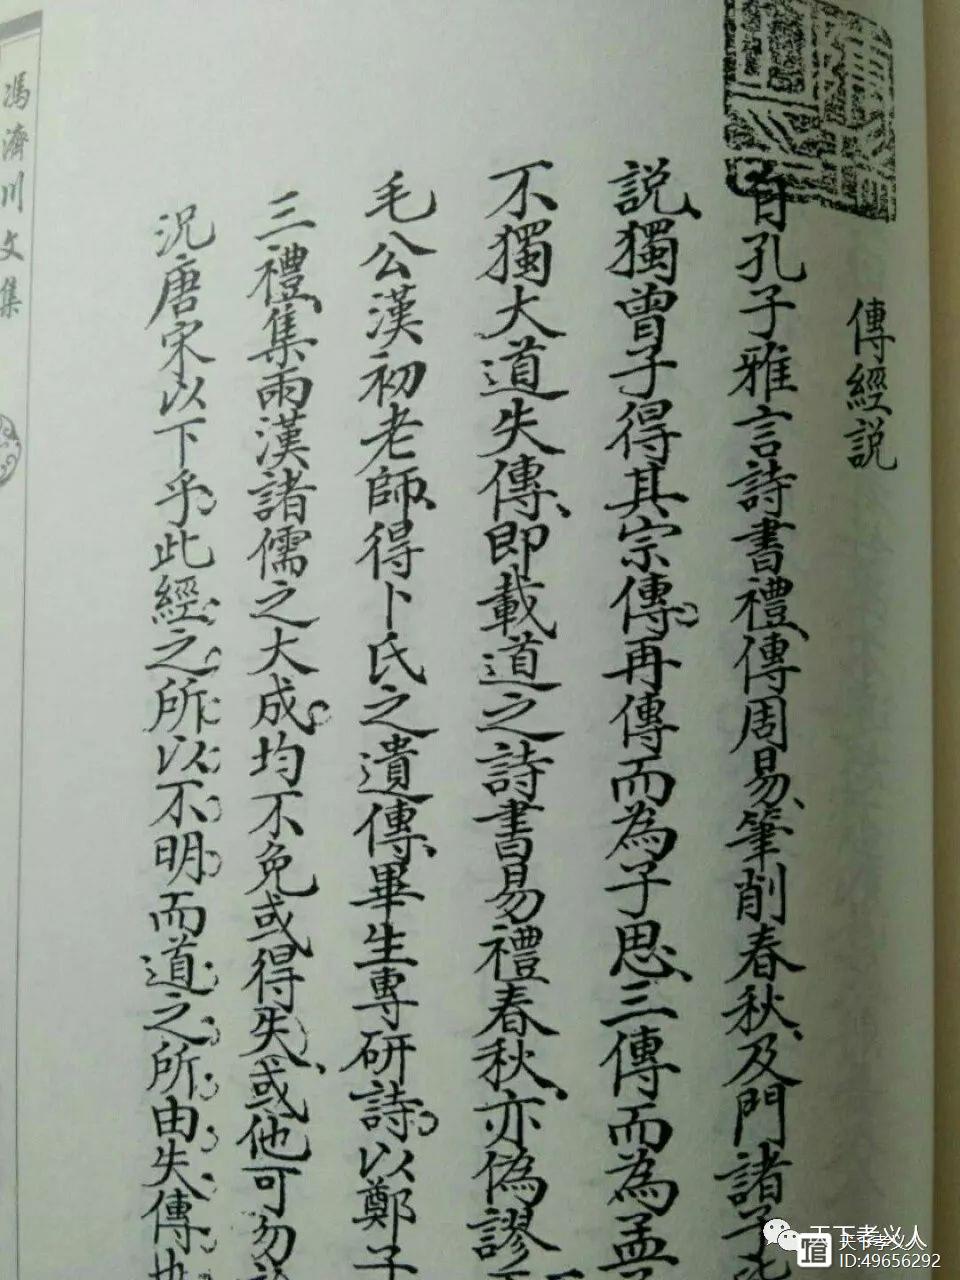 傳經說
自孔子雅言詩書禮傳周易筆削春秋及門諸子
說獨曾子得其宗傳再傳而為子思三傳而為孟
不獨大道失傳即載道之詩書易禮春秋亦偽謬
毛公漢初老師得卜氏之遺傳畢生專研詩以鄭
三禮集兩漢諸儒之大成均不免或得失或他可勿
況唐宋以下乎此經之所以不明而道之所由失傳也
馮濟川文集
天下孝义人
ID:49656292